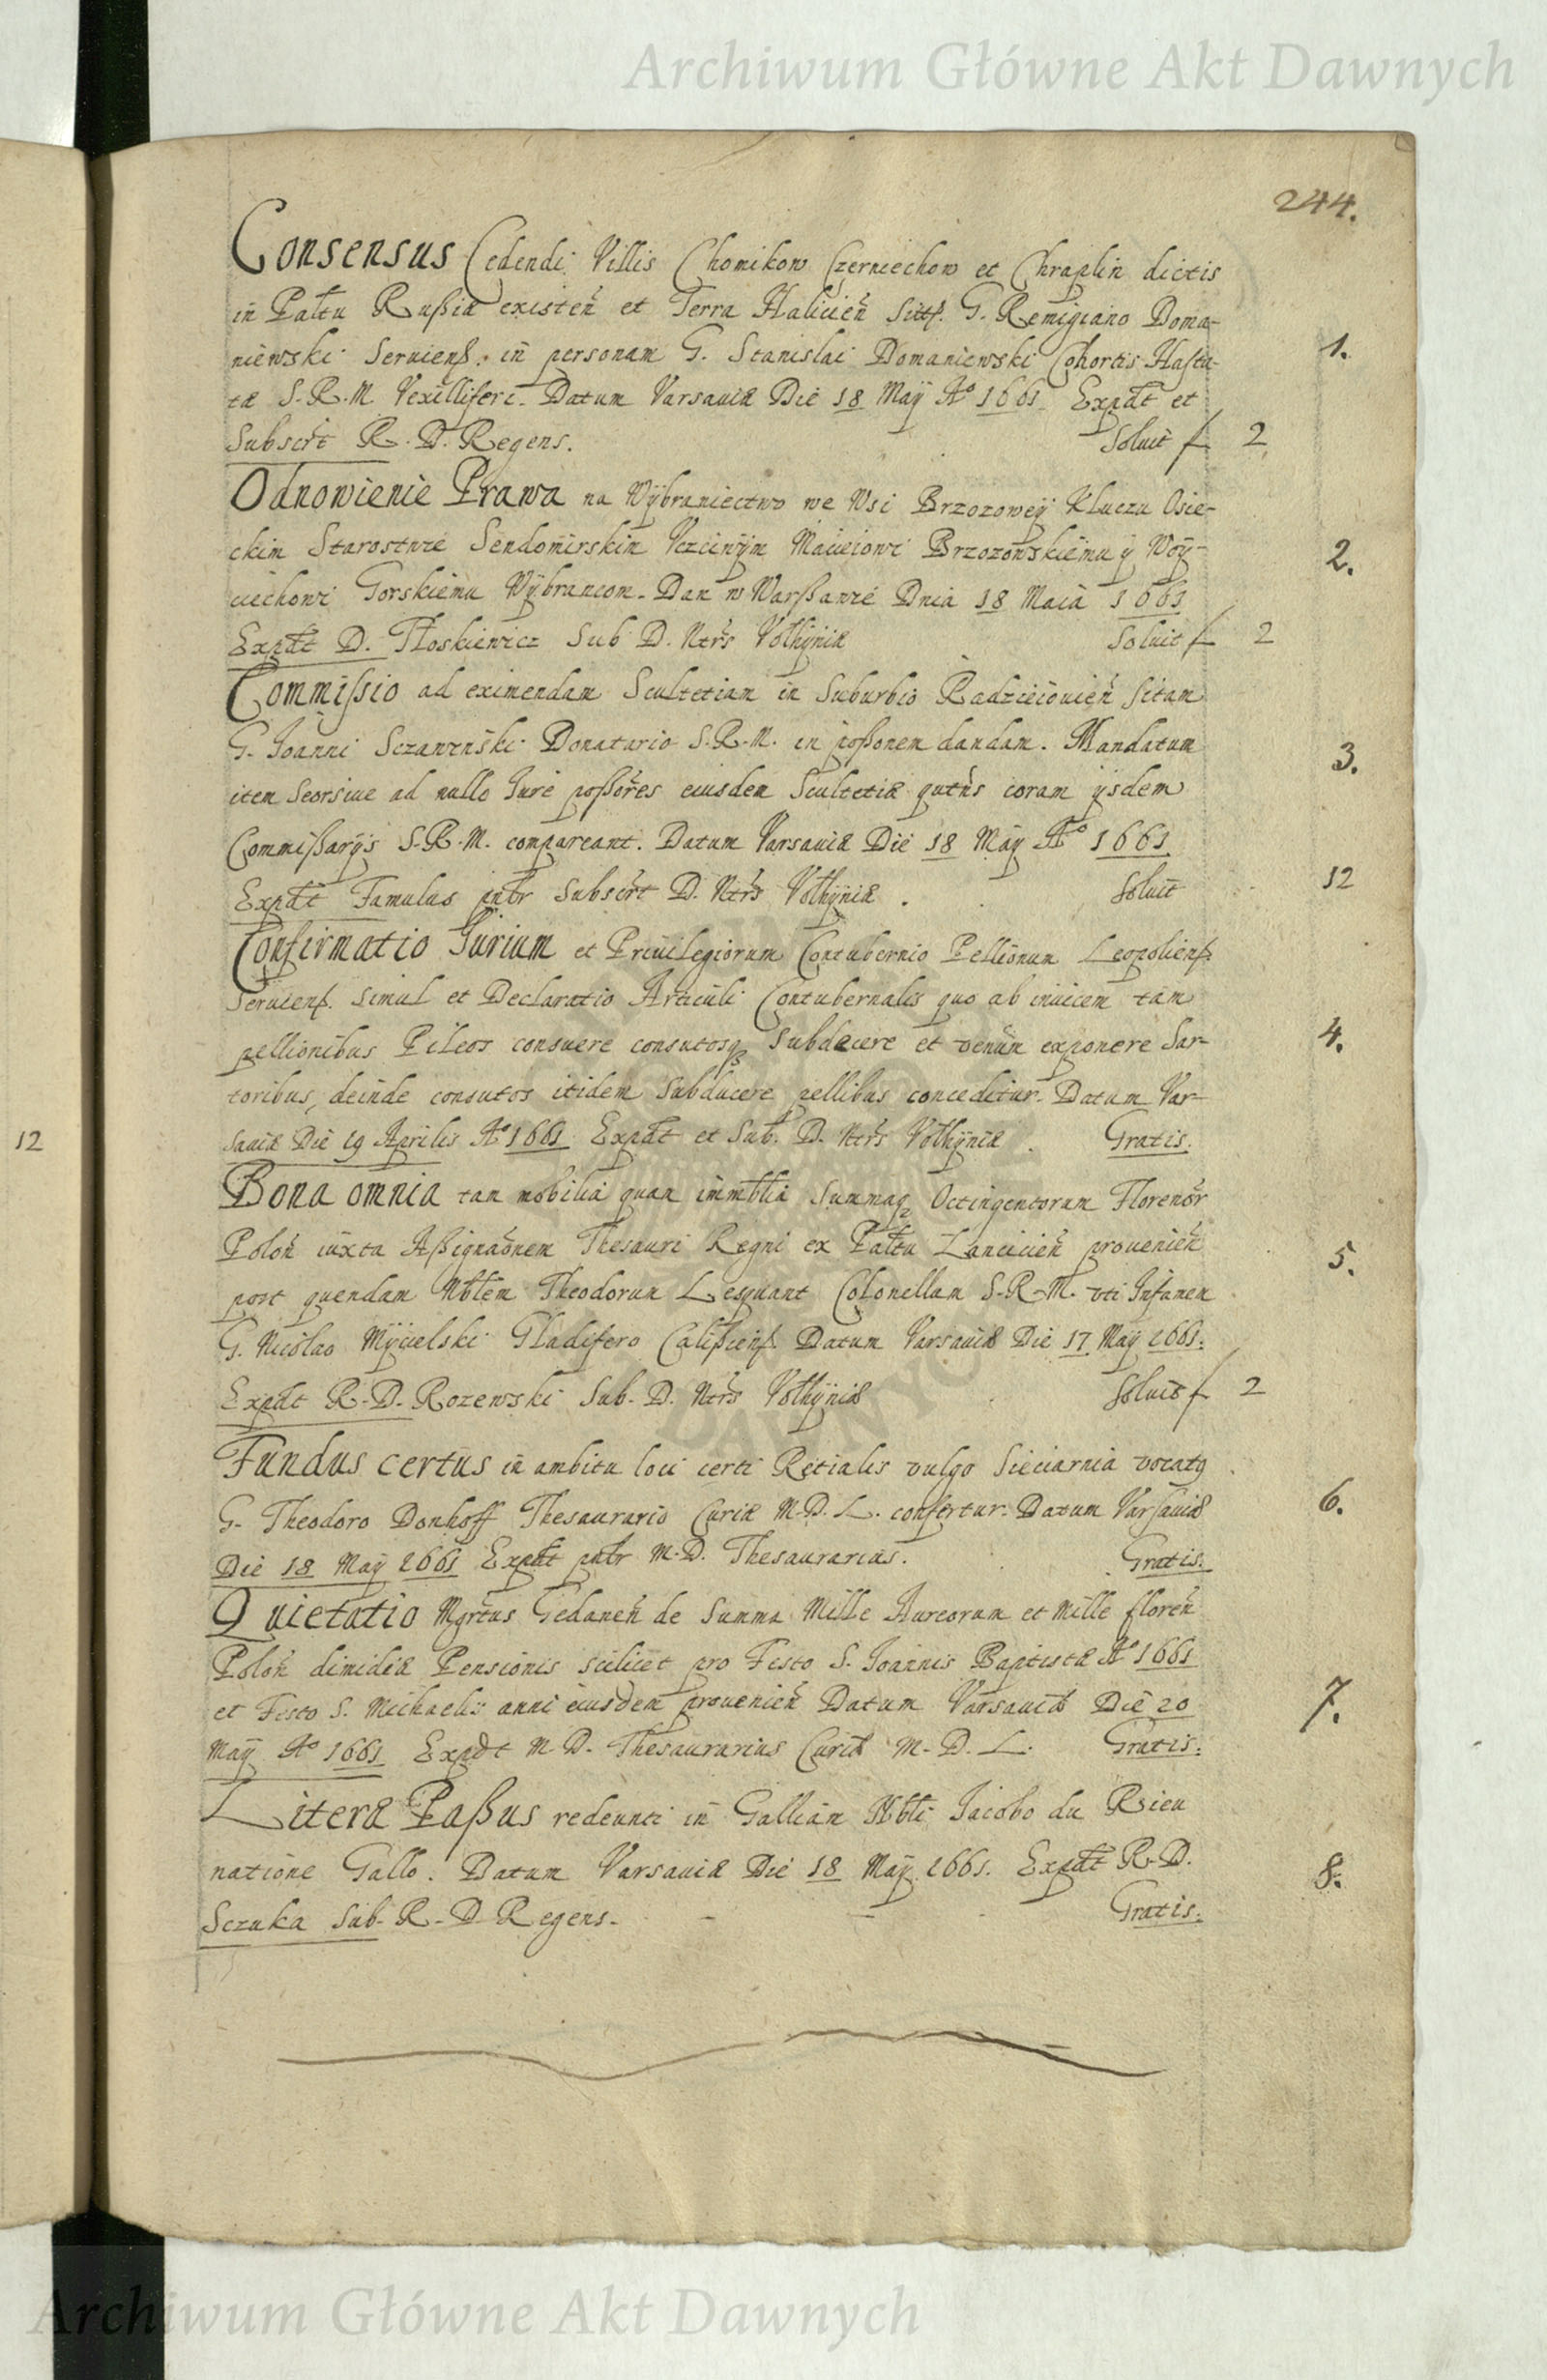 Archiwum Główne Akt Dawnych
244.
Consensus Cedendi Villis Chomikow Czerniechow et Chraplin dictis
in Paltu Rußiæ existeñ et Terra Halicieñ Sitis. G. Remigiano Doma-
niewski Seruiens. in personam G. Stanislai Domaniewski Cohortis Hasta-
tæ S. R. M. Vexilliferi. Datum Varsauiæ Die 18 Maÿ Aº 1661 Expdt et
1.
Subscrt R. D. Regens. Soluit f 2
Odnowienie Prawa na Wÿbraniectwo we Wsi Brzozoweÿ Kluczu Osie-
ckim Starostwie Sendomirskim Vczciwÿm Macieiowi Brzozowskiemu ÿ Woÿ-
2.
ciechowi Gorskiemu Wÿbrancom. Dan w Warßawie Dnia 18 Maia 1661
Expdt D. Tłoskiewicz Sub D. Ntrs Volhÿniæ Soluit f 2
Commißio ad eximendam Scultetiam in Suburbio Radzieiouieñ Sitam
G. Joanni Sczawinski Donatario S. R. M. in poßonem dandam. Mandatum
3.
item Seorsiue ad nullo Jure poßores eiusdem Scultetiæ qutns coram ijsdem
Commißarÿs S. R. M. compareant. Datum Varsauiæ Die 18 Maÿ Aº 1661
Expdt Famulus pntr Subscrt D. Ntrs Volhÿniæ. Soluit 12
Confirmatio Jurium et Priuilegiorum Contubernio Pellionum Leopoliens.
Seruiens. Simul et Declaratio Articuli Contubernalis quo ab inuicem tam
pellionibus Pileos consuere consutosq Subducere et venum exponere Sar-
4.
toribus, deinde consutos itidem Subducere pellibus conceditur. Datum Var-
12
sauiæ Die 19 Aprilis Aº 1661 Expdt et Sub. D. Ntrs Volhÿniæ. Gratis.
Bona omnia tam mobilia quam immblia Summaq Octingentorum Florenor
Poloñ iuxta Aßignaonem Thesauri Regni ex Paltu Lancicieñ prouenieñ
5.
post quendam Nblem Theodorum Lesquant Colonellum S. R. M. vti Infamem
G. Nicolao Mÿcielski Gladifero Calißiens. Datum Varsauiæ Die 17 Maÿ 1661.
Expdt R. D. Rozewski Sub. D. Ntrs Volhÿniæ Soluit f 2
Fundus certus in ambitu loci certi Retialis vulgo Sieciarnia vocatq
G. Theodoro Donhoff Thesaurario Curiæ M. D. L. confertur. Datum Varsauiæ
6.
Die 18 Maÿ 1661 Expdt pntr M. D. Thesaurarius. Gratis.
Quietatio Mgrtus Gedaneñ de Summa Mille Aureorum et Mille floreñ
Poloñ dimidiæ Pensionis scilicet pro Festo S. Joannis Baptistæ Aº 1661
et Festo S. Michaelis anni eiusdem prouenieñ Datum Varsauiæ Die 20
7.
Maÿ Aº 1661 Expdt M. D. Thesaurarius Curiæ M. D. L. Gratis.
Literæ Paßus redeunti in Galliam Nbli Jacobo du Rieu
natione Gallo. Datum Varsauiæ Die 18 Maÿ 1661. Expdt R. D.
8.
Sczuka Sub. R. D. Regens. Gratis.
Archiwum Główne Akt Dawnych